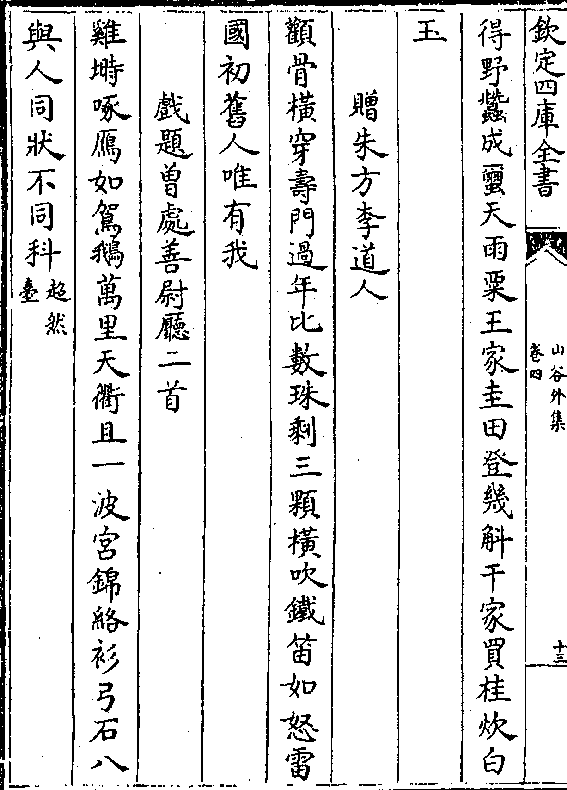 欽定四庫全書
山谷外集
卷四
十三
得野蠶成蠒天雨粟王家圭田登幾斛千家買桂炊白
玉
贈朱方李道人
顴骨橫穿壽門過年比數珠剩三顆橫吹鐵笛如怒雷
國初舊人唯有我
戲題曾處善尉廳二首
雞塒啄鴈如駕鵝萬里天衢且一波宮錦絡衫弓石八
與人同狀不同科超然
臺